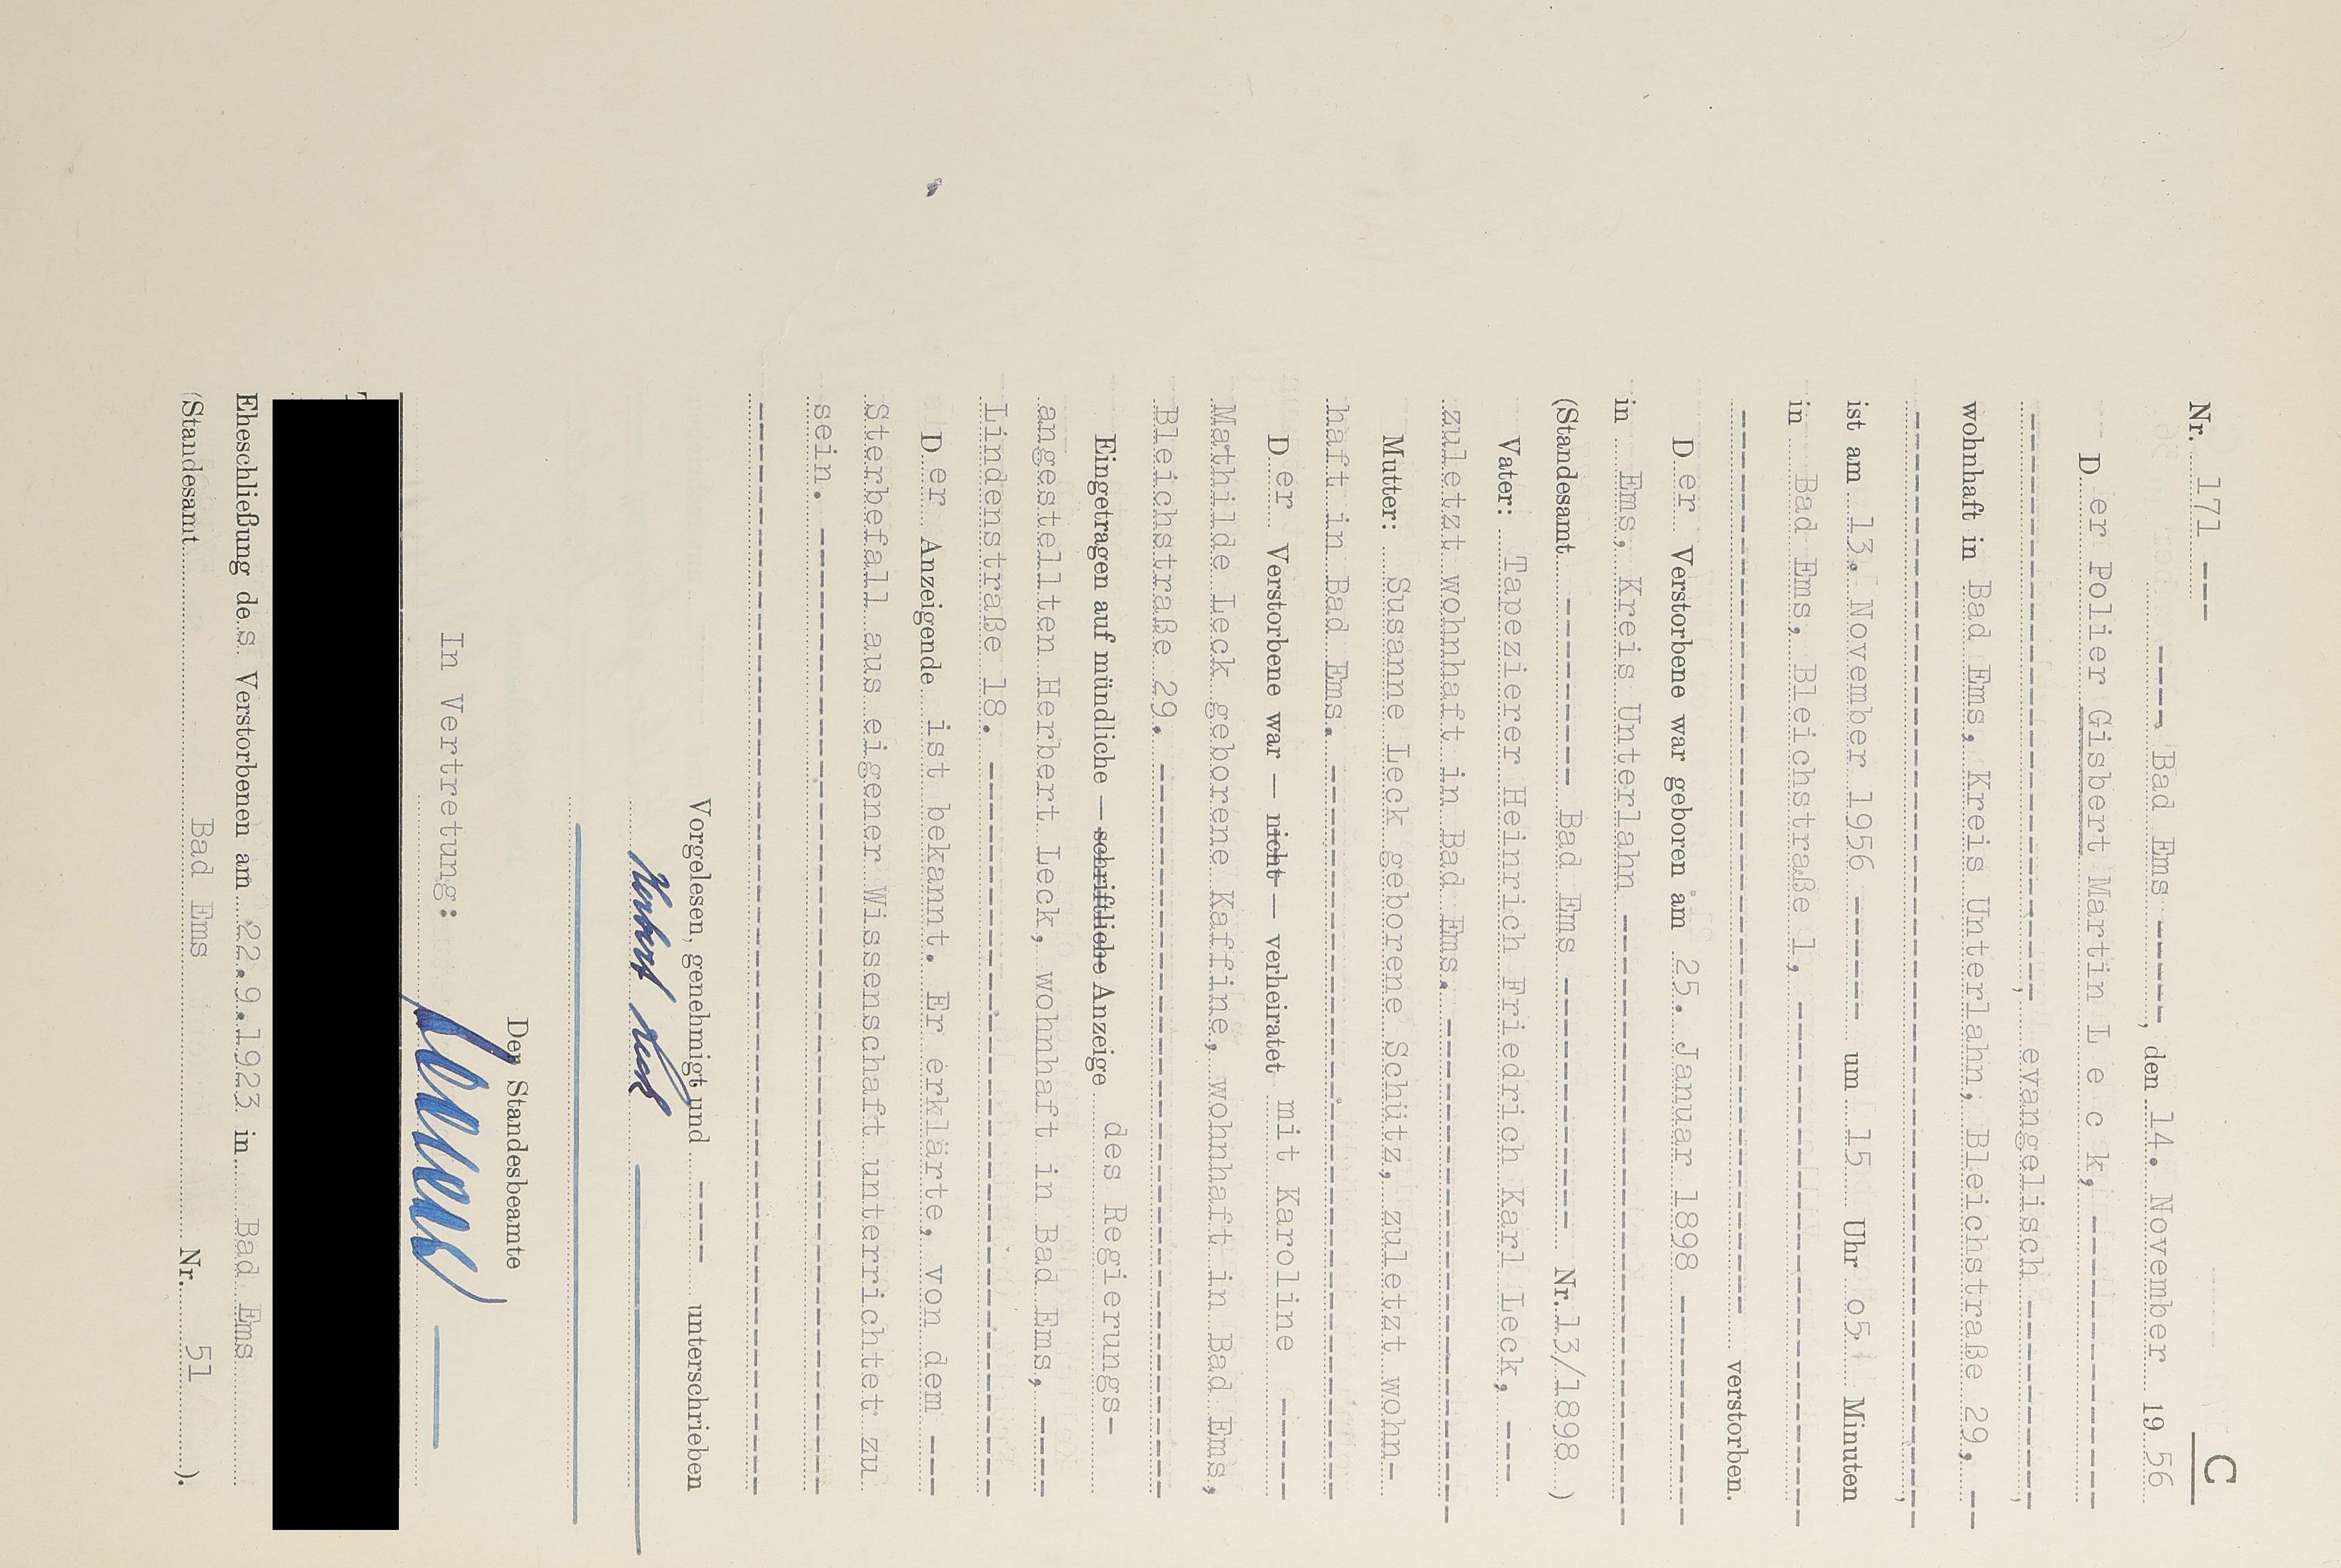 C
Nr. 171 ---
----, Bad Ems -----, den 14. November 19 56
Der Polier Gisbert Martin L e c k, ----------
----------------------------, evangelisch ----------,
wohnhaft in Bad Ems, Kreis Unterlahn, Bleichstraße 29, --
----------------------------------------,
ist am 13. November 1956 ------ um 15 Uhr 05 Minuten
in Bad Ems, Bleichstraße 1, ----------------
---------------------------------------- verstorben.
Der Verstorbene war geboren am 25. Januar 1898 ----------
in Ems, Kreis Unterlahn ----------------------------
(Standesamt --------- Bad Ems ------------ Nr. 13/1898 )
Vater: Tapezierer Heinrich Friedrich Karl Leck, ---
zuletzt wohnhaft in Bad Ems. ----------------------
Mutter: Susanne Leck geborene Schütz, zuletzt wohn-
haft in Bad Ems. ------------------------------
Der Verstorbene war — nicht — verheiratet mit Karoline -----
Mathilde Leck geborene Kaffine, wohnhaft in Bad Ems,
Bleichstraße 29. ----------------------------------
Eingetragen auf mündliche — schriftliche Anzeige des Regierungs-
angestellten Herbert Leck, wohnhaft in Bad Ems, ----
Lindenstraße 18. ----------------------------------
Der Anzeigende ist bekannt. Er erklärte, von dem ---
Sterbefall aus eigener Wissenschaft unterrichtet zu
sein. ----------------------------------------
--------------------------------------------------
Vorgelesen, genehmigt und ---- unterschrieben
Herbert Leck
Der Standesbeamte
In Vertretung:
Eheschließung des Verstorbenen am 22.9.1923 in Bad Ems
(Standesamt Bad Ems Nr. 51 ).